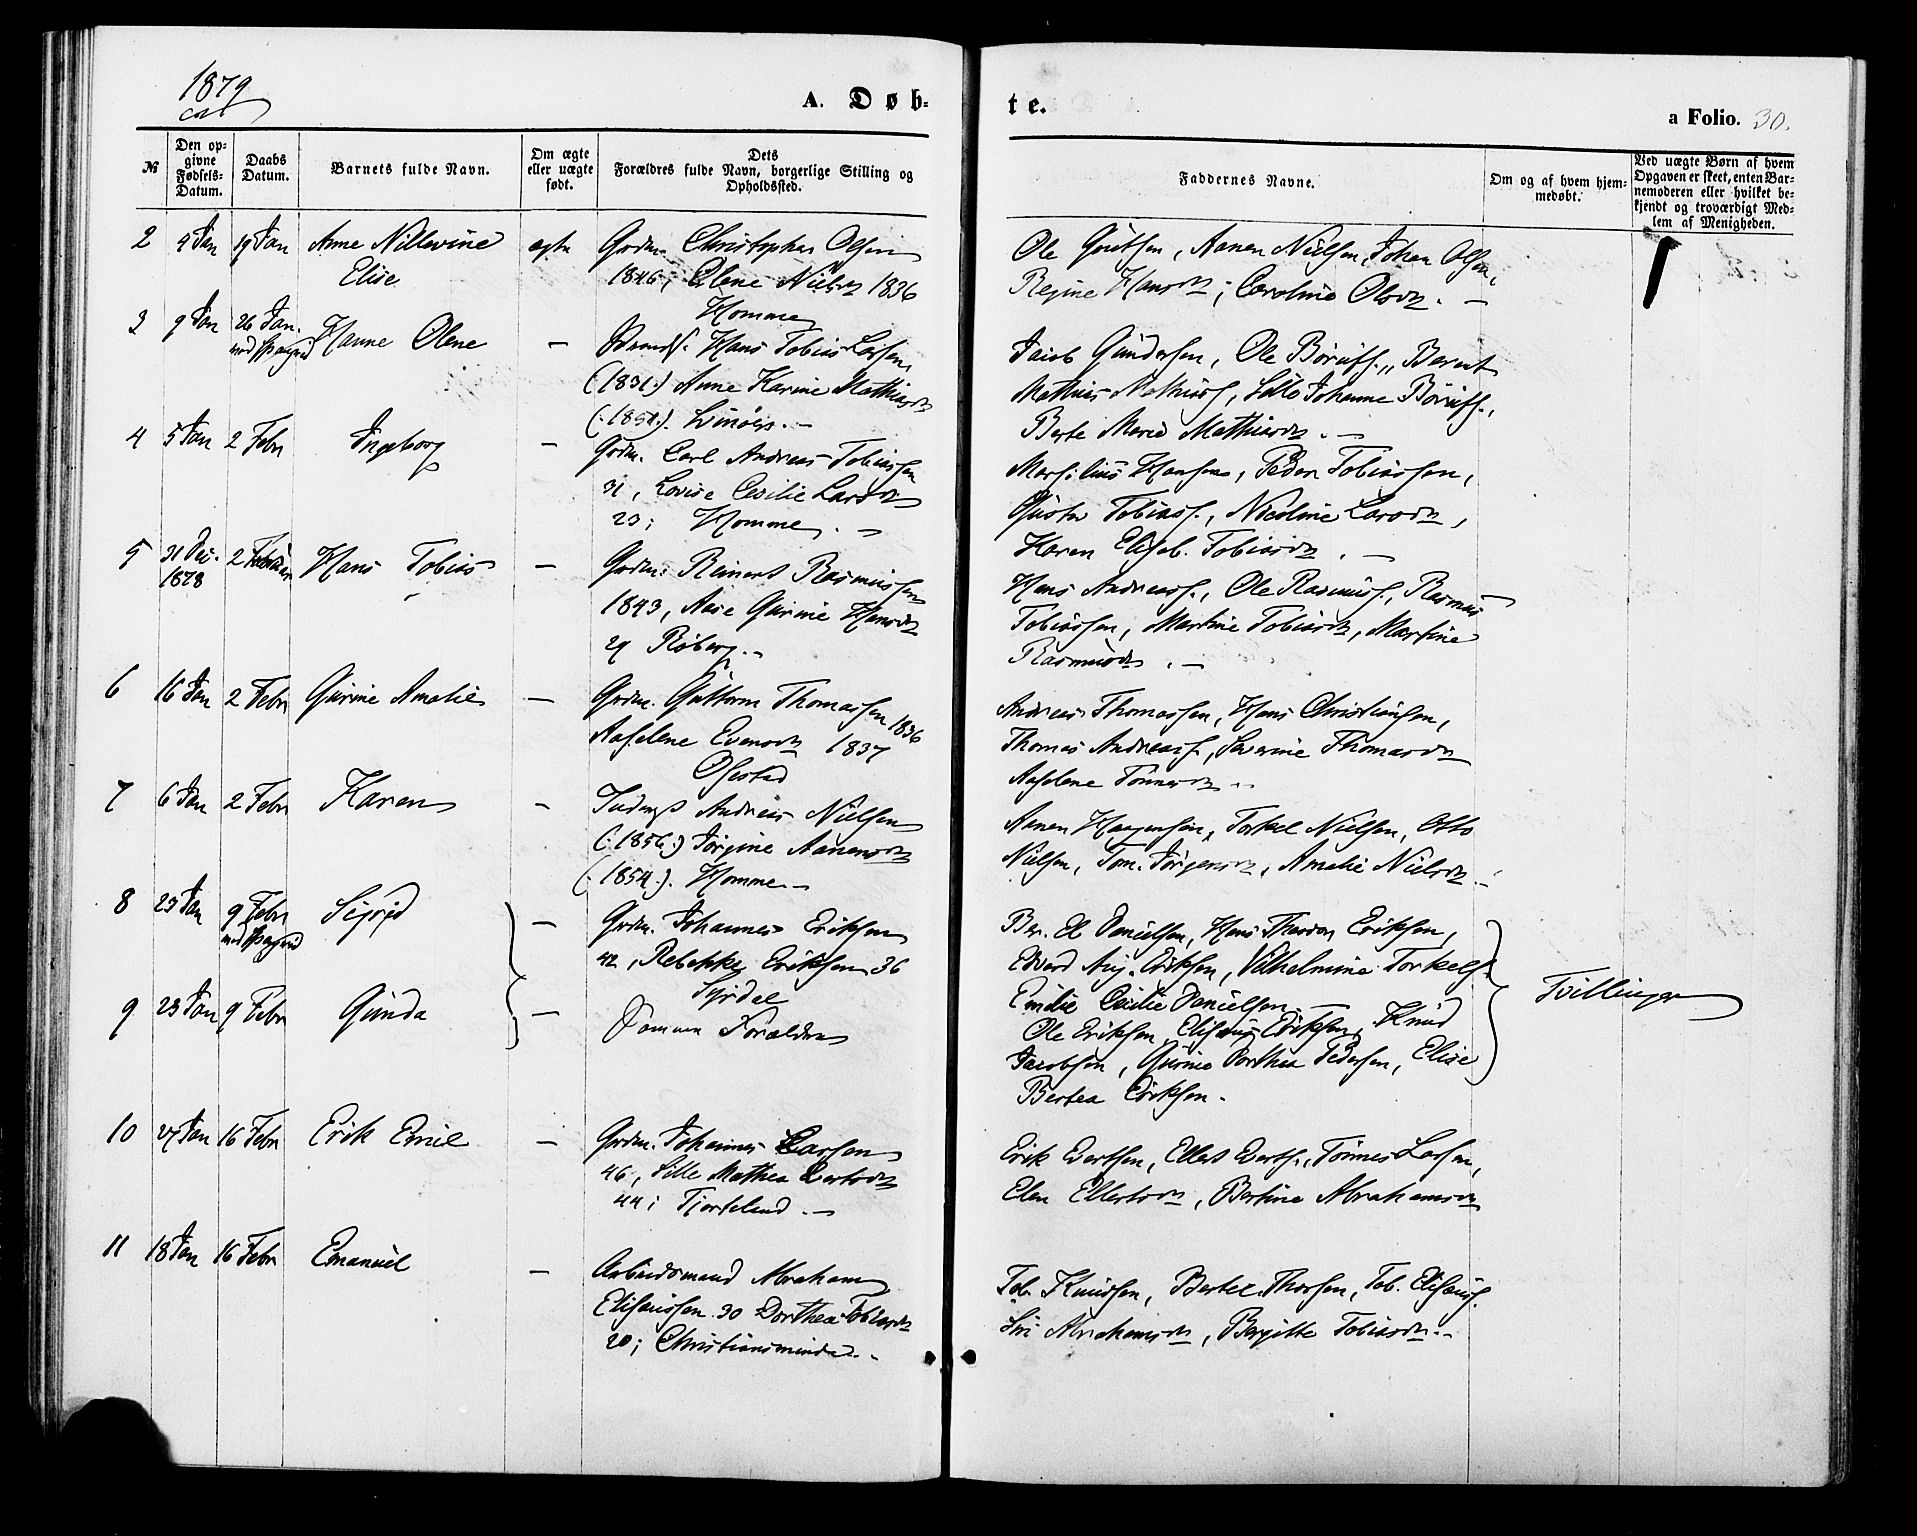 1879
A. Døb-
te.
a Folio. 30.
№
Den op-
givne
Fødsels-
Datum.
Daabs
Datum.
Barnets fulde Navn.
Om ægte
eller uægte
født.
Dets
Forældres fulde Navn, borgerlige Stilling og
Opholdssted.
Faddernes Navne.
Om og af hvem hjem-
medøbt.
Ved uægte Børn af hvem
Opgaven er skeet, enten Bar-
nemoderen eller hvilket be-
kjendt og troværdigt Med-
lem af Menigheden.
2 4 Jan 19 Jan Anne Nillevine ægte Grdm. Christopher Olsen
Elise 1846, Olene Nielsd 1836
Homme
Ole Knutsen, Aanen Nielsen, Johan Olsen,
Regine Hansd; Caroline Olsd. —
3 9 Jan 26 Jan. Hanne Olene — Hans Tobias Larsen
(1831.) Anne Karine Mathiasd
(:1851.)
Jacob Gundersen, Ole Børufs., Berent
Mathias Mathiass, Sille Johanne Børufs.,
Berte Marie Mathiasd. —
4 5 Jan 2 Febr Ingeborg — Grdm. Carl Andreas Tobiassen
31, Lovise Cecilie Larsd
23; Homme. —
Hansen, Peder Tobiassen,
Gustav Tobiass., Nicoline Larsd,
Karen Elisab. Tobiasd. —
5 31 Dec. 2 Februar Hans Tobias — Grdm. Reinert Rasmussen
1878 1843, Aase Gurine Hansd
29 Røberg. —
Hans Andreass., Ole Rasmuss., Rasmus
Tobiassen, Martine Tobiasd, Martine
Rasmusd. —
6 16 Jan 2 Febr Gurine Amalie — Grdm. Guttorm Thomassen 1836
Aaselene Evensd 1837
Ofestad
Andreas Thomassen, Hans Christiansen,
Thomas Andreass., Severine Thomasd
Aaselene Tønnesd —
7 6 Jan 2 Febr Karen - Andreas Nielsen
(:1856.) Jørgine Aanensd
(:1854.). Homme. —
Aanen Haagensen, Torkel Nielsen, Otto
Nielsen, Tom. Jørgensd, Amalie Nielsd —
8 23 Jan 9 Febr Sigrid — Grdm. Johannes Eriksen
42, Rebekke Eriksen 36
Syrdal
Danielsen, Hans Theodor Eriksen,
Edvard Aug. Eriksen, Vilhelmine Torkels.
Emilie Cecilie Danielsen. —
9 23 Jan 9 Febr Gunda — Samme Forældre
Ole Eriksen, Elisæus Eriksen, Knud
Jacobsen, Gurine Dorthea Pedersen, Elise
Bertea Eriksen.
Tvillinger
10 27 Jan 16 Febr Erik Emil — Grdm. Johannes Larsen
46, Sille Mathea Evertsd
44; Tjorteland. —
Erik Evertsen, Ellert Everts., Tønnes Larsen,
Elen Ellertsd, Bertine Abrahamsd
11 18 Jan 16 Febr Emanuel — Arbeidsmand Abraham
Elisæussen 30 Dorthea Tobiasd
20; Christiansminde.
Tob. Knudsen, Bertel Thorsen, Tob. Elisæus.
Siri Abrahamsd, Bergitte Tobiasd. —